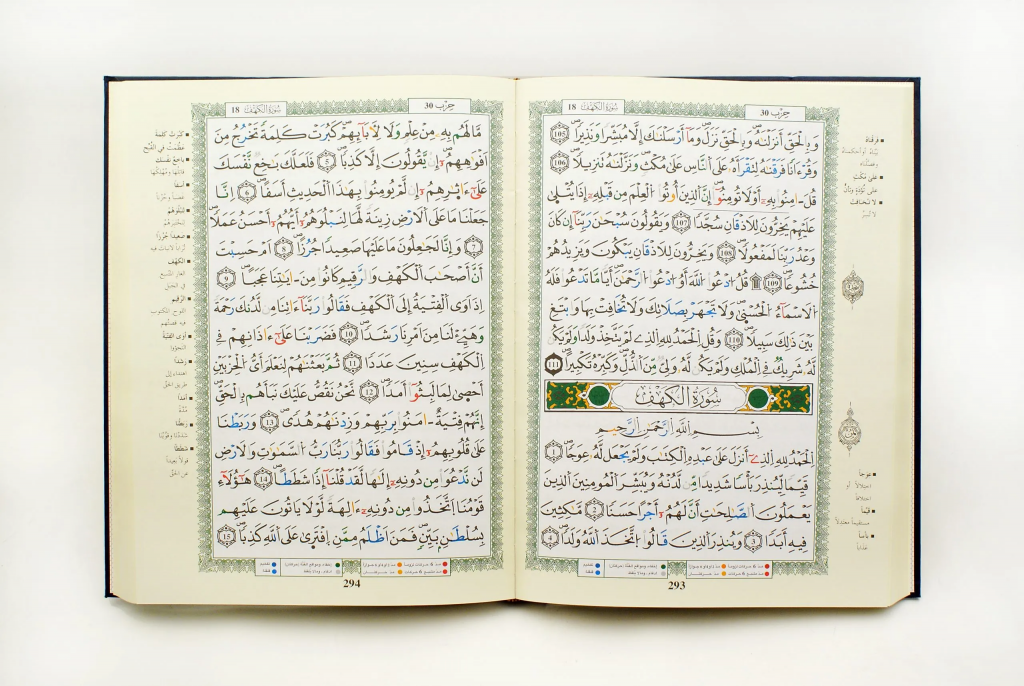 حِزْب 30
سُورَةُ الكَهْف 18
وَبِالْحَقِّ أَنزَلْنَٰهُ وَبِالْحَقِّ نَزَلَ وَمَآ أَرْسَلْنَٰكَ إِلَّا مُبَشِّرًا وَنَذِيرًا 105
وَقُرْءَانًا فَرَقْنَٰهُ لِتَقْرَأَهُۥ عَلَى النَّاسِ عَلَىٰ مُكْثٍ وَنَزَّلْنَٰهُ تَنزِيلًا 106
قُلَ ـٰمِنُوا بِهِۦٓ أَوْ لَا تُومِنُوٓا إِنَّ الذِينَ أُوتُوا الْعِلْمَ مِن قَبْلِهِۦٓ إِذَا يُتْلَىٰ
عَلَيْهِمْ يَخِرُّونَ لِلَاذْقَانِ سُجَّدًا 107 وَيَقُولُونَ سُبْحَٰنَ رَبِّنَآ إِن كَانَ
وَعْدُ رَبِّنَا لَمَفْعُولًا 108 وَيَخِرُّونَ لِلَاذْقَانِ يَبْكُونَ وَيَزِيدُهُمْ
خُشُوعًا 109 ۞ قُلُ ادْعُوا اللَّهَ أَوُ ادْعُوا الرَّحْمَٰنَ أَيًّا مَّا تَدْعُوا فَلَهُ
الَاسْمَآءُ الْحُسْنَىٰ وَلَا تَجْهَرْ بِصَلَاتِكَ وَلَا تُخَافِتْ بِهَا وَابْتَغِ
بَيْنَ ذَٰلِكَ سَبِيلًا 110 وَقُلِ الْحَمْدُ لِلهِ الذِے لَمْ يَتَّخِذْ وَلَدًا وَلَمْ يَكُن
لَّهُۥ شَرِيكٌ فِے الْمُلْكِ وَلَمْ يَكُن لَّهُۥ وَلِيٌّ مِّنَ الذُّلِّ وَكَبِّرْهُ تَكْبِيرًا 111
سُورَةُ الْكَهْفِ
بِسْمِ اللَّهِ الرَّحْمَٰنِ الرَّحِيمِ
الْحَمْدُ لِلهِ الذِےٓ أَنزَلَ عَلَىٰ عَبْدِهِ الْكِتَٰبَ وَلَمْ يَجْعَل لَّهُۥ عِوَجًا 1
قَيِّمًا لِّيُنذِرَ بَأْسًا شَدِيدًا مِّن لَّدُنْهُ وَيُبَشِّرَ الْمُومِنِينَ الذِينَ
يَعْمَلُونَ الصَّٰلِحَٰتِ أَنَّ لَهُمُۥٓ أَجْرًا حَسَنًا 2 مَّٰكِثِينَ
فِيهِ أَبَدًا 3 وَيُنذِرَ الذِينَ قَالُوا اتَّخَذَ اللَّهُ وَلَدًا 4
فرقناه
على مكث
لا تخافت
عوجا
قيما
بأسا
293
حِزْب 30
سُورَةُ الكَهْف 18
مَّا لَهُم بِهِۦ مِنْ عِلْمٍ وَلَا لِأَبَآئِهِمْ كَبُرَتْ كَلِمَةً تَخْرُجُ مِنَ
اَفْوَٰهِهِمُۥٓ إِن يَقُولُونَ إِلَّا كَذِبًا 5 فَلَعَلَّكَ بَٰخِعٌ نَّفْسَكَ
عَلَىٰٓ ءَاثَٰرِهِمُۥٓ إِن لَّمْ يُومِنُوا بِهَٰذَا الْحَدِيثِ أَسَفًا 6 اِنَّا
جَعَلْنَا مَا عَلَى الَارْضِ زِينَةً لَّهَا لِنَبْلُوَهُمُۥٓ أَيُّهُمُۥٓ أَحْسَنُ عَمَلًا
7 وَإِنَّا لَجَٰعِلُونَ مَا عَلَيْهَا صَعِيدًا جُرُزًا 8 اَمْ حَسِبْتَ
أَنَّ أَصْحَٰبَ الْكَهْفِ وَالرَّقِيمِ كَانُوا مِنَ ـٰيَٰتِنَا عَجَبًا 9
اِذَ اَوَى الْفِتْيَةُ إِلَى الْكَهْفِ فَقَالُوا رَبَّنَآ ءَاتِنَا مِن لَّدُنكَ رَحْمَةً
وَهَيِّئْ لَنَا مِنَ اَمْرِنَا رَشَدًا 10 فَضَرَبْنَا عَلَىٰٓ ءَاذَانِهِمْ فِے
الْكَهْفِ سِنِينَ عَدَدًا 11 ثُمَّ بَعَثْنَٰهُمْ لِنَعْلَمَ أَيُّ الْحِزْبَيْنِ
أَحْصَىٰ لِمَا لَبِثُوٓا أَمَدًا 12 نَّحْنُ نَقُصُّ عَلَيْكَ نَبَأَهُم بِالْحَقِّ
إِنَّهُمْ فِتْيَةٌ ـٰمَنُوا بِرَبِّهِمْ وَزِدْنَٰهُمْ هُدًى 13 وَرَبَطْنَا
عَلَىٰ قُلُوبِهِمُۥٓ إِذْ قَامُوا فَقَالُوا رَبُّنَا رَبُّ السَّمَٰوَٰتِ وَالَارْضِ
لَن نَّدْعُوَا مِن دُونِهِۦٓ إِلَٰهًا لَّقَدْ قُلْنَآ إِذًا شَطَطًا 14 هَٰٓؤُلَآءِ
قَوْمُنَا اتَّخَذُوا مِن دُونِهِۦٓ ءَالِهَةً لَّوْلَا يَاتُونَ عَلَيْهِم
بِسُلْطَٰنٍ بَيِّنٍ فَمَنَ اَظْلَمُ مِمَّنِ اِفْتَرَىٰ عَلَى اللَّهِ كَذِبًا 15
كبرت كلمة
باخع نفسك
أسفا
لنبلوهم
صعيدا جرزا
الكهف
الرقيم
أوى الفتية
رشدا
أمدا
ربطنا
شططا
294